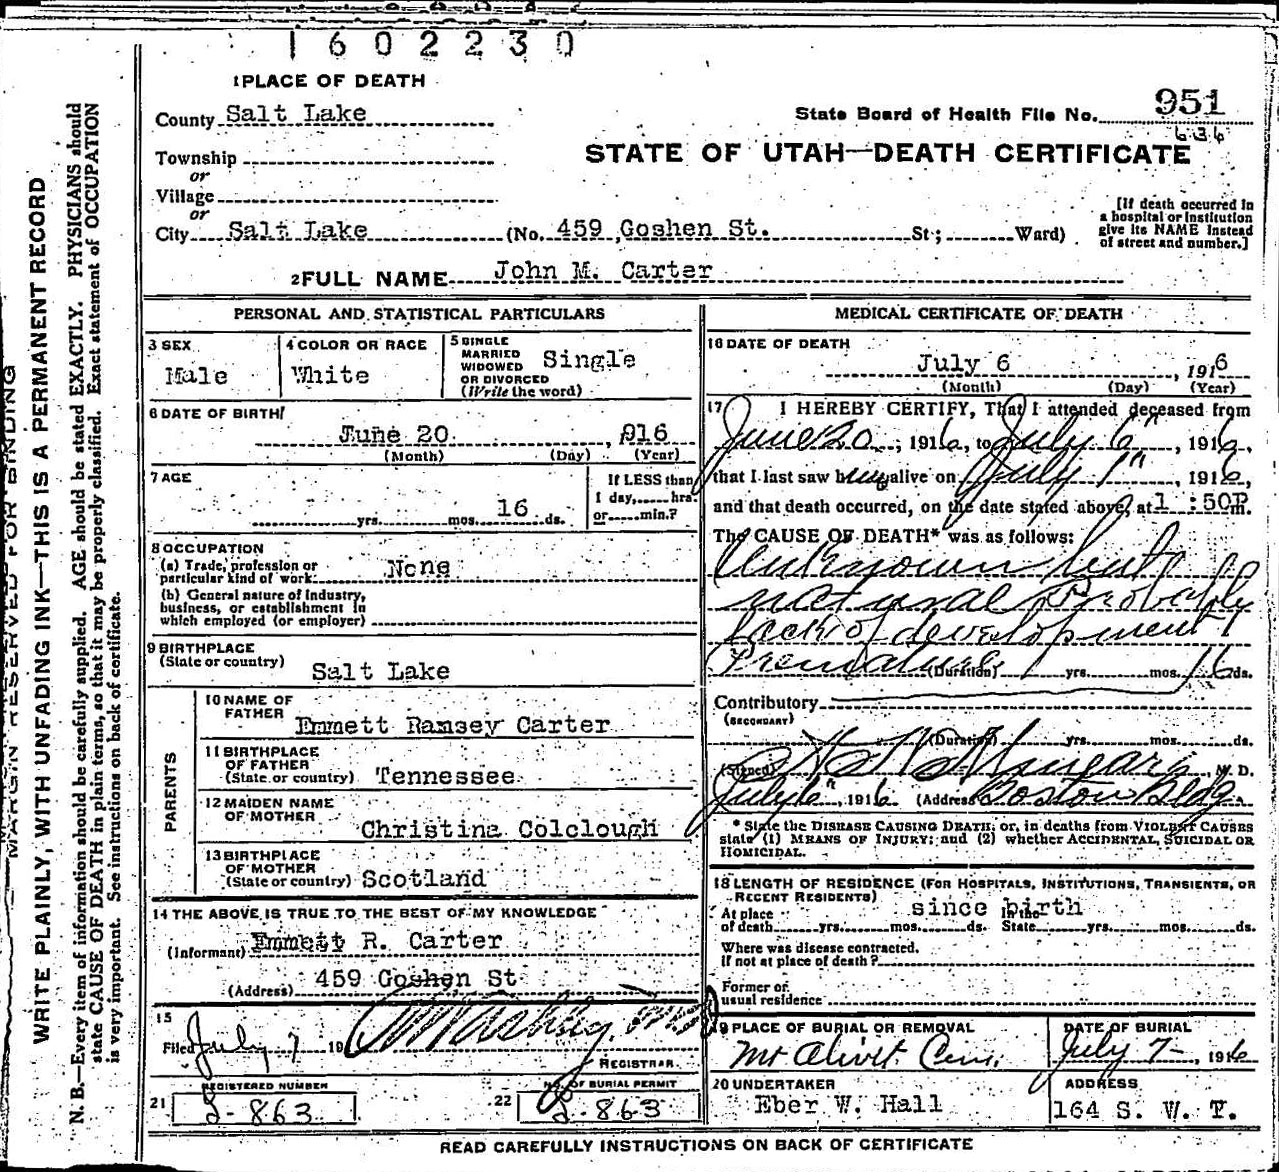 1602230
1 PLACE OF DEATH
County Salt Lake
State Board of Health File No. 951
636
Township
or
Village
or
STATE OF UTAH—DEATH CERTIFICATE
City Salt Lake (No. 459 Goshen St. St; Ward)
[If death occurred in
a hospital or institution
give its NAME instead
of street and number.]
2 FULL NAME John M. Carter
PERSONAL AND STATISTICAL PARTICULARS
3 SEX
Male
4 COLOR OR RACE
White
5 SINGLE
MARRIED
WIDOWED
OR DIVORCED
(Write the word)
Single
6 DATE OF BIRTH
June 20, 916
(Month) (Day) (Year)
7 AGE
yrs. mos. 16 ds.
If LESS than
1 day, hrs.
or min.?
8 OCCUPATION
(a) Trade, profession or
particular kind of work None
(b) General nature of industry,
business, or establishment in
which employed (or employer)
9 BIRTHPLACE
(State or country)
Salt Lake
PARENTS
10 NAME OF
FATHER
Emmett Ramsey Carter
11 BIRTHPLACE
OF FATHER
(State or country) Tennessee
12 MAIDEN NAME
OF MOTHER
Christina Colclough
13 BIRTHPLACE
OF MOTHER
(State or country) Scotland
14 THE ABOVE IS TRUE TO THE BEST OF MY KNOWLEDGE
(Informant) Emmett R. Carter
(Address) 459 Goshen St
15
Filed July 7 19
REGISTRAR.
REGISTERED NUMBER
21 2-863
NO. OF BURIAL PERMIT
22 2-863
MEDICAL CERTIFICATE OF DEATH
16 DATE OF DEATH
July 6, 1916
(Month) (Day) (Year)
17 I HEREBY CERTIFY, That I attended deceased from
June 20, 1916, to July 6", 1916,
that I last saw him alive on July 1", 1916,
and that death occurred, on the date stated above, at 1:50P m.
The CAUSE OF DEATH* was as follows:
Unknown but
natural Probably
lack of development
Premature (Duration) yrs. mos. 16 ds.
Contributory
(SECONDARY)
(Duration) yrs. mos. ds.
(Signed) M. D.
July 6", 1916 (Address) Boston Bldg.
* State the DISEASE CAUSING DEATH; or, in deaths from VIOLENT CAUSES
state (1) MEANS OF INJURY; and (2) whether ACCIDENTAL, SUICIDAL OR
HOMICIDAL.
18 LENGTH OF RESIDENCE (FOR HOSPITALS, INSTITUTIONS, TRANSIENTS, OR
RECENT RESIDENTS)
since birth
At place In the
of death yrs. mos. ds. State yrs. mos. ds.
Where was disease contracted,
if not at place of death?
Former or
usual residence
19 PLACE OF BURIAL OR REMOVAL
Mt Olivet Cem.
DATE OF BURIAL
July 7, 1916
20 UNDERTAKER
Eber W. Hall
ADDRESS
164 S. W. T.
READ CAREFULLY INSTRUCTIONS ON BACK OF CERTIFICATE
MARGIN RESERVED FOR BINDING
WRITE PLAINLY, WITH UNFADING INK—THIS IS A PERMANENT RECORD
N. B.—Every item of information should be carefully supplied. AGE should be stated EXACTLY. PHYSICIANS should
state CAUSE OF DEATH in plain terms, so that it may be properly classified. Exact statement of OCCUPATION
is very important. See instructions on back of certificate.